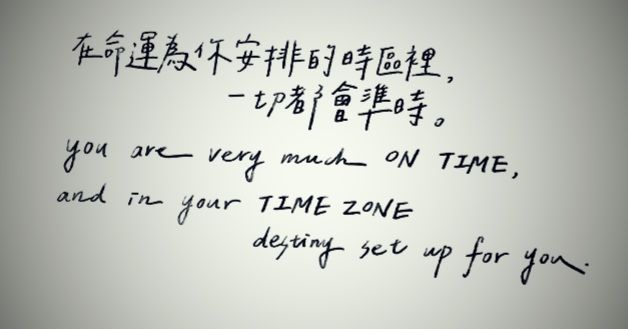 在命運為你安排的時區裡,
一切都會準時。
you are very much ON TIME,
and in your TIME ZONE
destiny set up for you.